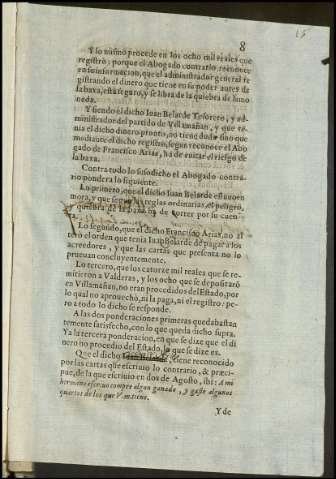 15
8
Y lo mismo procede en los ocho mil reales que
registrò; porque el Abogado contrario reconoce
en su informacion, que el administrador general re
gistrando el dinero que tiene en su poder antes de
la baxa, està seguro, y se libra de la quiebra de la mo
neda.
Y siendo el dicho Iuan Belarde Tesorero, y ad-
ministrador del partido de Villamañan, y que te-
nia el dicho dinero pronto, no tiene duda sino que
mediante el dicho registro, segun reconoce el Abo
gado de Francisco Arias, ha de euitar el riesgo de
la baxa.
Contra todo lo susodicho el Abogado contra-
rio pondera lo siguiente.
Lo primero, que el dicho Iuan Belarde estuuo en
mora, y que segun las reglas ordinarias, el peligro,
y quiebra de la baxa ha de correr por su cuen
Lo segundo, que el dicho Francisco Arias, no al
terò el orden que tenia Iuan Belarde de pagar a los
acreedores, y que las cartas que presenta no lo
prueuan concluyentemente.
Lo tercero, que los catorze mil reales que se re-
mitieron a Valderas, y los ocho que se depositarõ
en Villamañan, no eran procedidos del Estado, por
lo qual no aprouechò, ni la paga, ni el registro: pe-
ro a todo lo dicho se responde.
A las dos ponderaciones primeras queda bastan
temente satisfecho, con lo que queda dicho supra.
Y a la tercera ponderacion, en que se dize que el di
nero no procedio del Estado, lo que se dize es.
Que el dicho Iuan Belarde, tiene reconocido
por las cartas que escriuio lo contrario, & præci-
puè, de la que escriuio en dos de Agosto, ibi: A mi
hermano escriuo compre algun ganado, y gaste algunos
quartos de los que V.m. tiene.
Y de